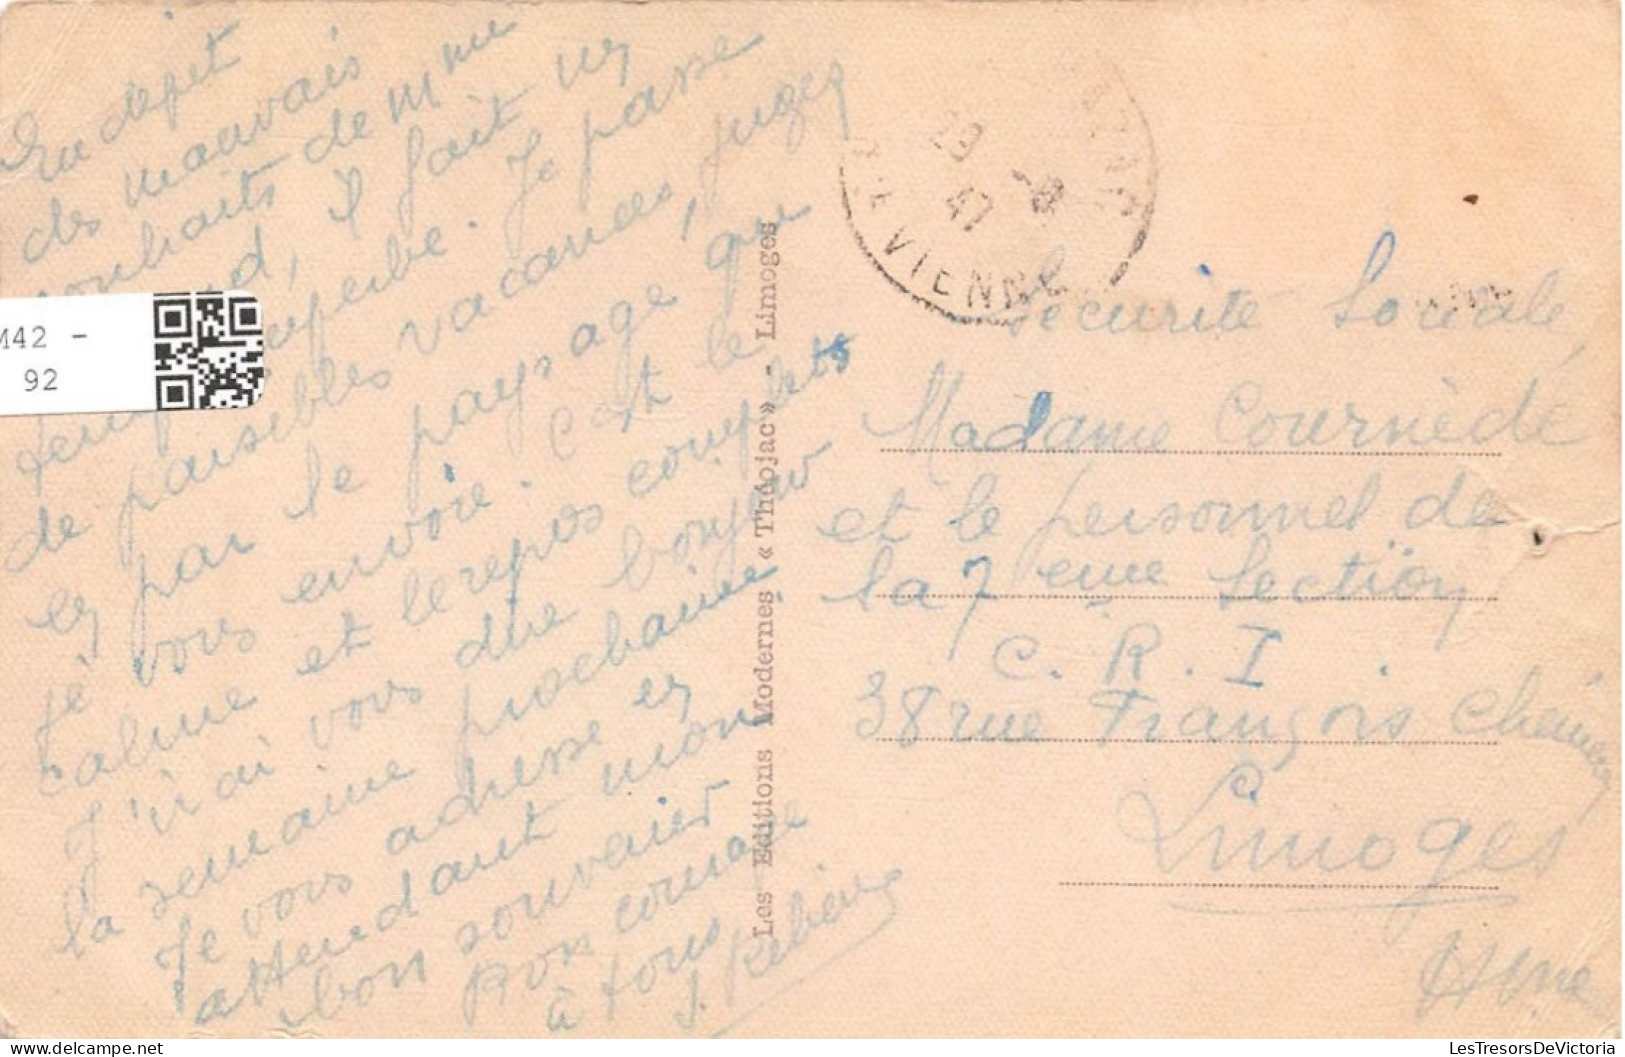 En depit
des mauvais
souhaits de Mme
d, il fait un
superbe. Je passe
de paisibles vacances, jugez
en par le paysage que
je vous envoie. C'est le
calme et le repos complets
J'irai vous dire bonjour
la semaine prochaine
Je vous adresse en
attendant mon
bon souvenir
bon courage
à tous
Les Editions Modernes « Théojac » - Limoges
29 -8
47
VIENNE
Sécurité Sociale
Madame Cournède
et le personnel de
la 7eme Section
C. R. I.
38 rue François Chénieux
Limoges
Hte Vne
M42 -
92
LesTresorsDeVictoria